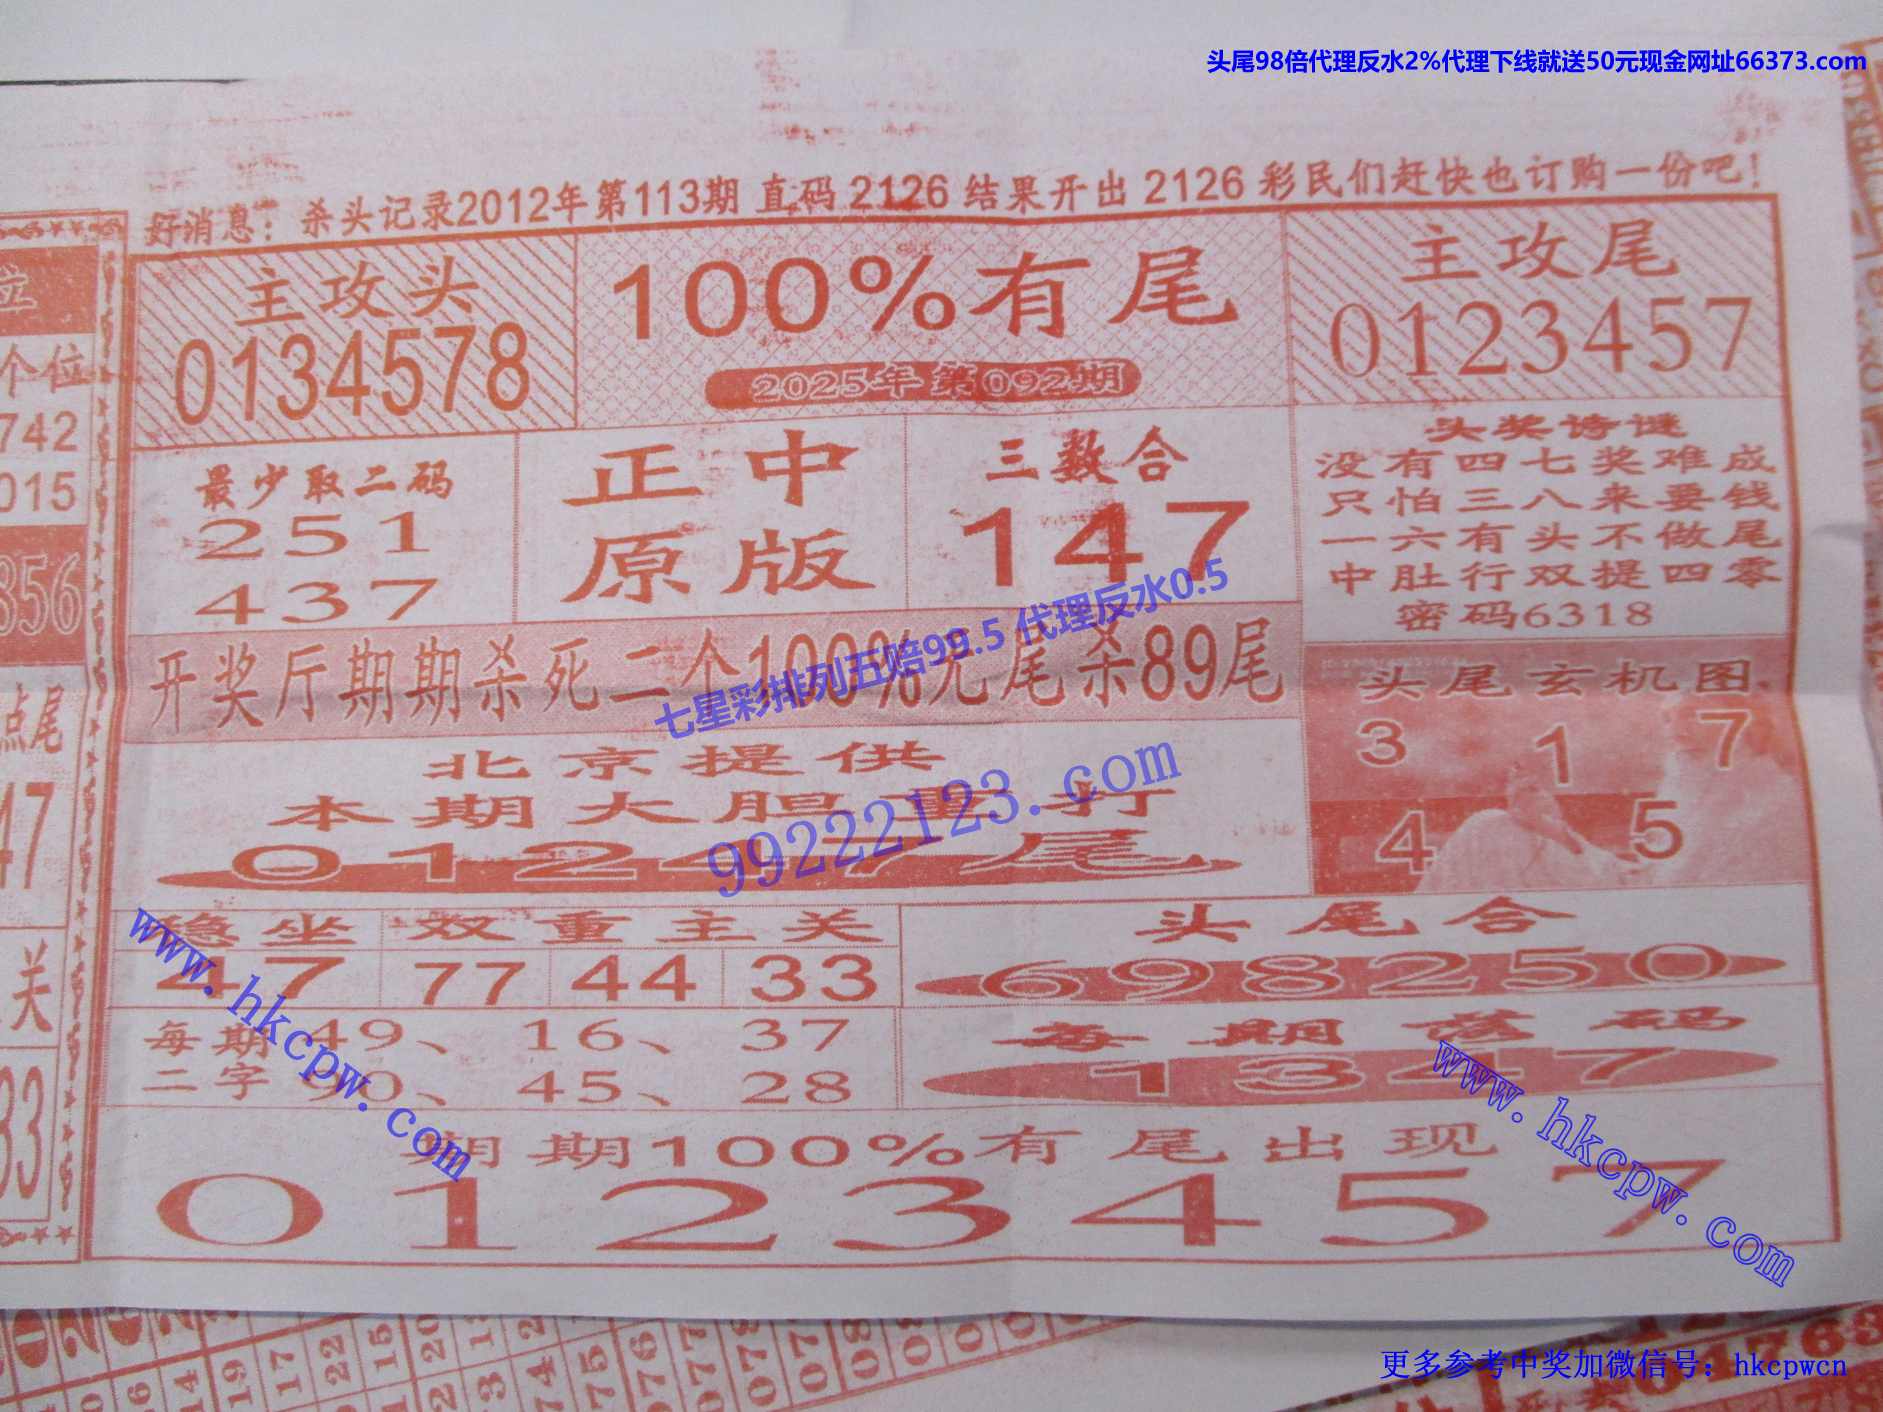 头尾98倍代理反水2%代理下线就送50元现金网址66373.com
好消息：杀头记录2012年第113期 直码 2126 结果开出 2126 彩民们赶快也订购一份吧！
主攻头
0134578
100%有尾
2025年 第092期
主攻尾
0123457
最少取二码
251
437
正中
原版
三数合
147
头奖诗谜
没有四七奖难成
只怕三八来要钱
一六有头不做尾
中肚行双提四零
密码6318
开奖厅期期杀死二个100%元 尾杀89尾
七星彩排列五赔99.5 代理反水0.5
头尾玄机图
3 1 7
4 5
北京提供
本期大胆重打
01247尾
99222123.com
稳坐
47
双重主关
77 44 33
头尾合
698250
每期
二字
49、16、37
90、45、28
每期落码
1347
www.hkcpw.com
www.hkcpw.com
期期100%有尾出现
0123457
位
个位
742
015
856
点尾
47
关
33
更多参考中奖加微信号：hkcpwcn